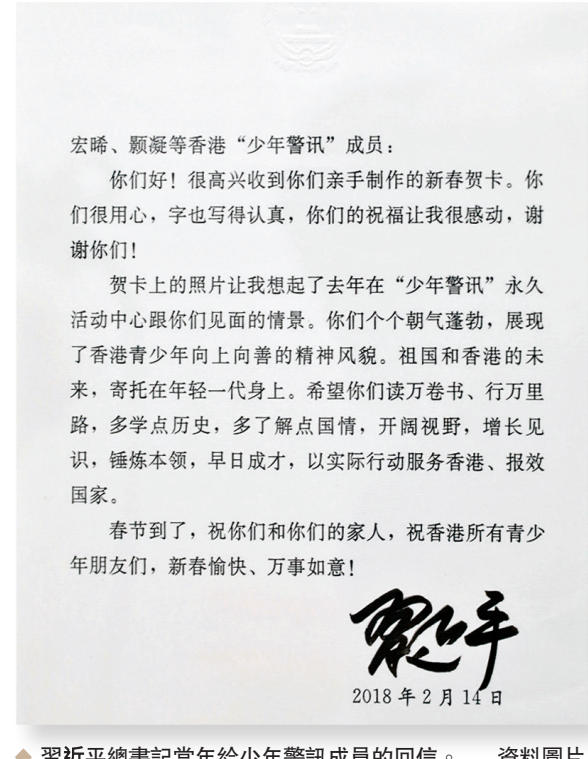 宏晞、颢凝等香港“少年警讯”成员：
你们好！很高兴收到你们亲手制作的新春贺卡。你
们很用心，字也写得认真，你们的祝福让我很感动，谢
谢你们！
贺卡上的照片让我想起了去年在“少年警讯”永久
活动中心跟你们见面的情景。你们个个朝气蓬勃，展现
了香港青少年向上向善的精神风貌。祖国和香港的未
来，寄托在年轻一代身上。希望你们读万卷书、行万里
路，多学点历史，多了解点国情，开阔视野，增长见
识，锤炼本领，早日成才，以实际行动服务香港、报效
国家。
春节到了，祝你们和你们的家人，祝香港所有青少
年朋友们，新春愉快、万事如意！
習近平
2018 年 2 月 14 日
習近平總書記當年給少年警訊成員的回信。 資料圖片